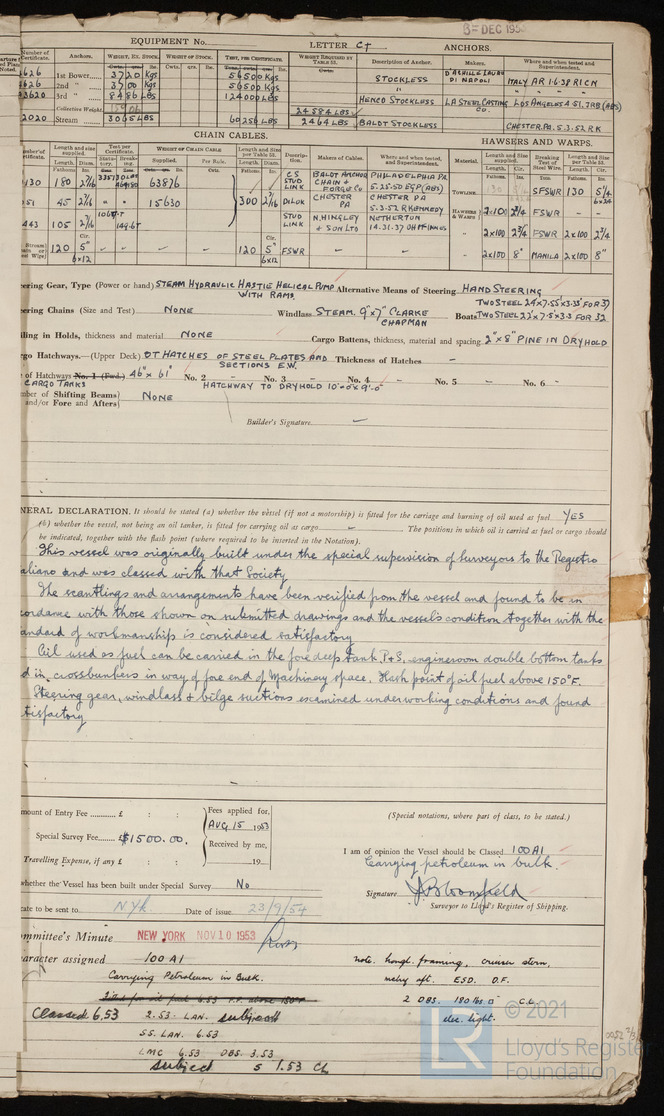 8 - DEC 195
EQUIPMENT No. LETTER C† ANCHORS.
Number of Certificate. Anchors. WEIGHT, EX. STOCK. WEIGHT OF STOCK. TEST, PER CERTIFICATE. WEIGHT REQUIRED BY TABLE 53. Description of Anchor. Makers. Where and when tested and Superintendent.
1626 1st Bower 3720 Kgs 56500 Kgs STOCKLESS D'ACHILLE LAURO DI NAPOLI ITALY AR 1.6.38 RICN
1626 2nd " 3700 Kgs 56500 Kgs " " " "
3620 3rd " 8486 LBS 124000 LBS HENCO STOCKLESS LA STEEL CASTING CO. LOS ANGELES 4.51. JRB (ABS)
Collective Weight. 24584 LBS
2020 Stream 3065 LBS 60256 LBS 2464 LBS BALDT STOCKLESS CHESTER, PA. 5.3.52 R.K
CHAIN CABLES. HAWSERS AND WARPS.
Number of Certificate. Length and size supplied. Test per Certificate. WEIGHT OF CHAIN CABLE Length and size per Table 53. Description. Makers of Cables. Where and when tested, and Superintendent. Material. Length and Size supplied. Breaking Test of Steel Wire. Length and size per Table 53.
Length. Diam. Statutory. Breaking. Supplied. Per Rule. Length. Diam.
130 180 2 3/16 63876 CS STUD LINK BALDT ANCHOR CHAIN & FORGE CO PHILADELPHIA PA 5.25.50 EGP (ABS) TOWLINE. 130 SFSWR 130 5/4 6x24
51 45 2 3/16 " " 15630 300 2 3/16 DILOK CHESTER PA CHESTER PA 5.3.52 R KENNEDY HAWSERS & WARPS 2x100 2 3/4 FSWR - -
443 105 2 3/16 STUD LINK N. HINGLEY & SON LTD NETHERTON 14.31.37 " 2x100 2 3/4 FSWR 2x100 2 3/4
120 5" 6x12 120 5" 6x12 FSWR " 2x100 8" MANILA 2x100 8"
ering Gear, Type (Power or hand) STEAM HYDRAULIC HASTIE HELICAL PUMP WITH RAMS Alternative Means of Steering HAND STEERING
ering Chains (Size and Test) NONE Windlass STEAM. 9"x7" CLARKE CHAPMAN Boats TWO STEEL 24x7.55x3.35 FOR 37 TWO STEEL 22x7.5x3.3 FOR 32
iling in Holds, thickness and material NONE Cargo Battens, thickness, material and spacing 2"x8" PINE IN DRYHOLD
go Hatchways.—(Upper Deck) OT HATCHES OF STEEL PLATES AND SECTIONS E.W. Thickness of Hatches -
of Hatchways No. 1 (Fwd.) 46"x 61" No. 2 - No. 3 - No. 4 - No. 5 - No. 6 -
CARGO TANKS HATCHWAY TO DRYHOLD 10'-0"x9'-0"
ber of Shifting Beams and/or Fore and Afters NONE
Builder's Signature
NERAL DECLARATION. It should be stated (a) whether the vessel (if not a motorship) is fitted for the carriage and burning of oil used as fuel YES
(b) whether the vessel, not being an oil tanker, is fitted for carrying oil as cargo The positions in which oil is carried as fuel or cargo should
be indicated, together with the flash point (where required to be inserted in the Notation).
This vessel was originally built under the special supervision of Surveyors to the Registro
aliano and was classed with that Society
The scantlings and arrangements have been verified from the vessel and found to be in
ordance with those shown on submitted drawings and the vessel's condition together with the
andard of workmanship is considered satisfactory
Oil used as fuel can be carried in the fore deep tank P+S, engineroom double bottom tanks
d in crossbunkers in way of fore end of Machinery space. Flash point of oil fuel above 150°F.
Steering gear, windlass & bilge suctions examined under working conditions and found
tisfactory
mount of Entry Fee £ : : Fees applied for, (Special notations, where part of class, to be stated.)
AUG 15 1953
Special Survey Fee $1500.00. Received by me, I am of opinion the Vessel should be Classed 100 A1
Travelling Expense, if any £ : : 19 Carrying petroleum in bulk.
whether the Vessel has been built under Special Survey No Signature J Bloomfield
Surveyor to Lloyd's Register of Shipping.
cate to be sent to NYK Date of issue 23/9/54
mmittee's Minute NEW YORK NOV 10 1953
aracter assigned 100 A1 note. longl. framing, cruiser stern,
Carrying Petroleum in Bulk. mchy aft. ESD. D.F.
Fitted for oil fuel 6.53 F.P. above 150°F 2 DBS. 180 lbs. C.L.
Classed 6.53 2.53. LAN. subject dec. light.
SS. LAN. 6.53
LMC 6.53 DBS. 3.53
subject S 1.53 CL
© 2021
LR
Lloyd's Register
Foundation